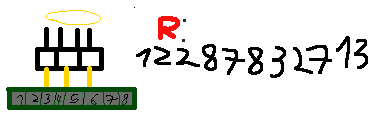 R:
12287832713
12345678